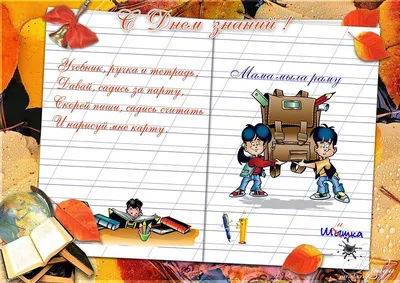 С Днем знаний !
Учебник, ручка и тетрадь,
Давай, садись за парту,
Скорей пиши, садись считать
И нарисуй мне карту.
Мама мыла раму
и
Шышка